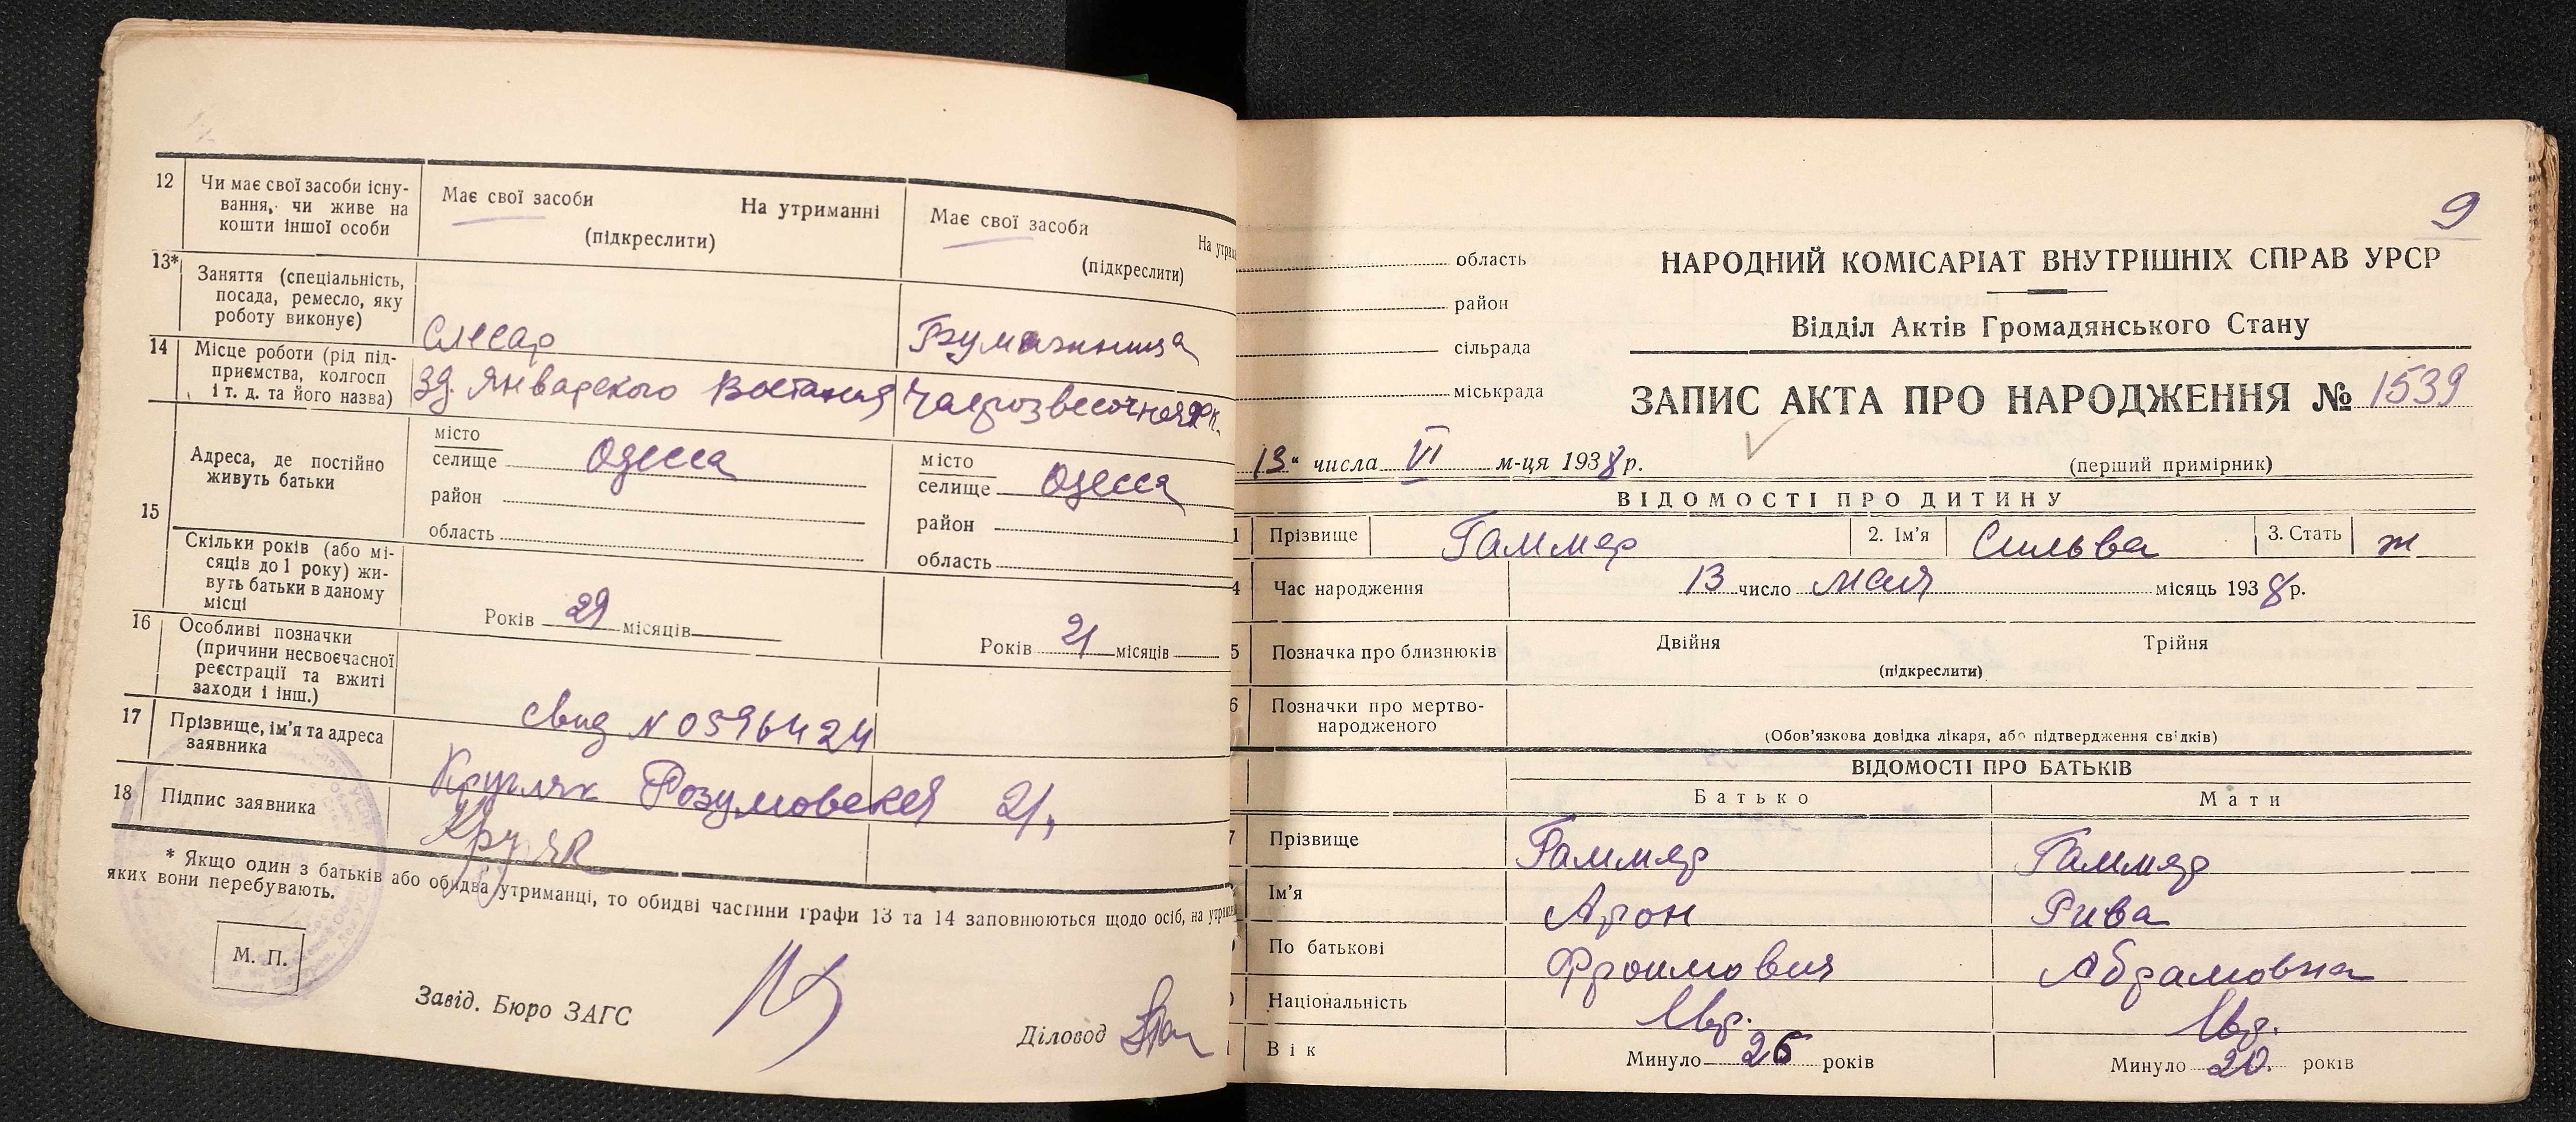 12 Чи має свої засоби існу-
вання, чи живе на
кошти іншої особи
Має свої засоби На утриманні
(підкреслити)
Має свої засоби На утрим
(підкреслити)
13* Заняття (спеціальність,
посада, ремесло, яку
роботу виконує)
Слесар
14 Місце роботи (рід під-
приємства, колгосп
і т. д. та його назва)
Зд. Январского Востания
15 Адреса, де постійно
живуть батьки
місто
селище Одесса
район
область
місто
селище Одесса
район
область
Скільки років (або мі-
сяців до 1 року) жи-
вуть батьки в даному
місці
Років 29 місяців
Років 21 місяців
16 Особливі позначки
(причини несвоєчасної
реєстрації та вжиті
заходи і інш.)
свид N 0596424
17 Прізвище, ім'я та адреса
заявника
Кругляк Розумовская 21,
18 Підпис заявника
* Якщо один з батьків або обидва утриманці, то обидві частини графи 13 та 14 заповнюються щодо осіб, на утрим
яких вони перебувають.
М. П.
Завід. Бюро ЗАГС
Діловод
9
область
район
сільрада
міськрада
НАРОДНИЙ КОМІСАРІАТ ВНУТРІШНІХ СПРАВ УРСР
Відділ Актів Громадянського Стану
ЗАПИС АКТА ПРО НАРОДЖЕННЯ № 1539
13" числа VI м-ця 1938 р.
(перший примірник)
ВІДОМОСТІ ПРО ДИТИНУ
1 Прізвище Гаммер 2. Ім'я Сильва 3. Стать ж
4 Час народження 13 число мая місяць 1938 р.
5 Позначка про близнюків Двійня Трійня
(підкреслити)
6 Позначки про мертво-
народженого
(Обов'язкова довідка лікаря, або підтвердження свідків)
ВІДОМОСТІ ПРО БАТЬКІВ
Батько Мати
7 Прізвище Гаммер Гаммер
Ім'я Арон Рива
По батькові Фроимович Абрамовна
Національність Євр. Євр.
Вік Минуло 26 років Минуло 20. років